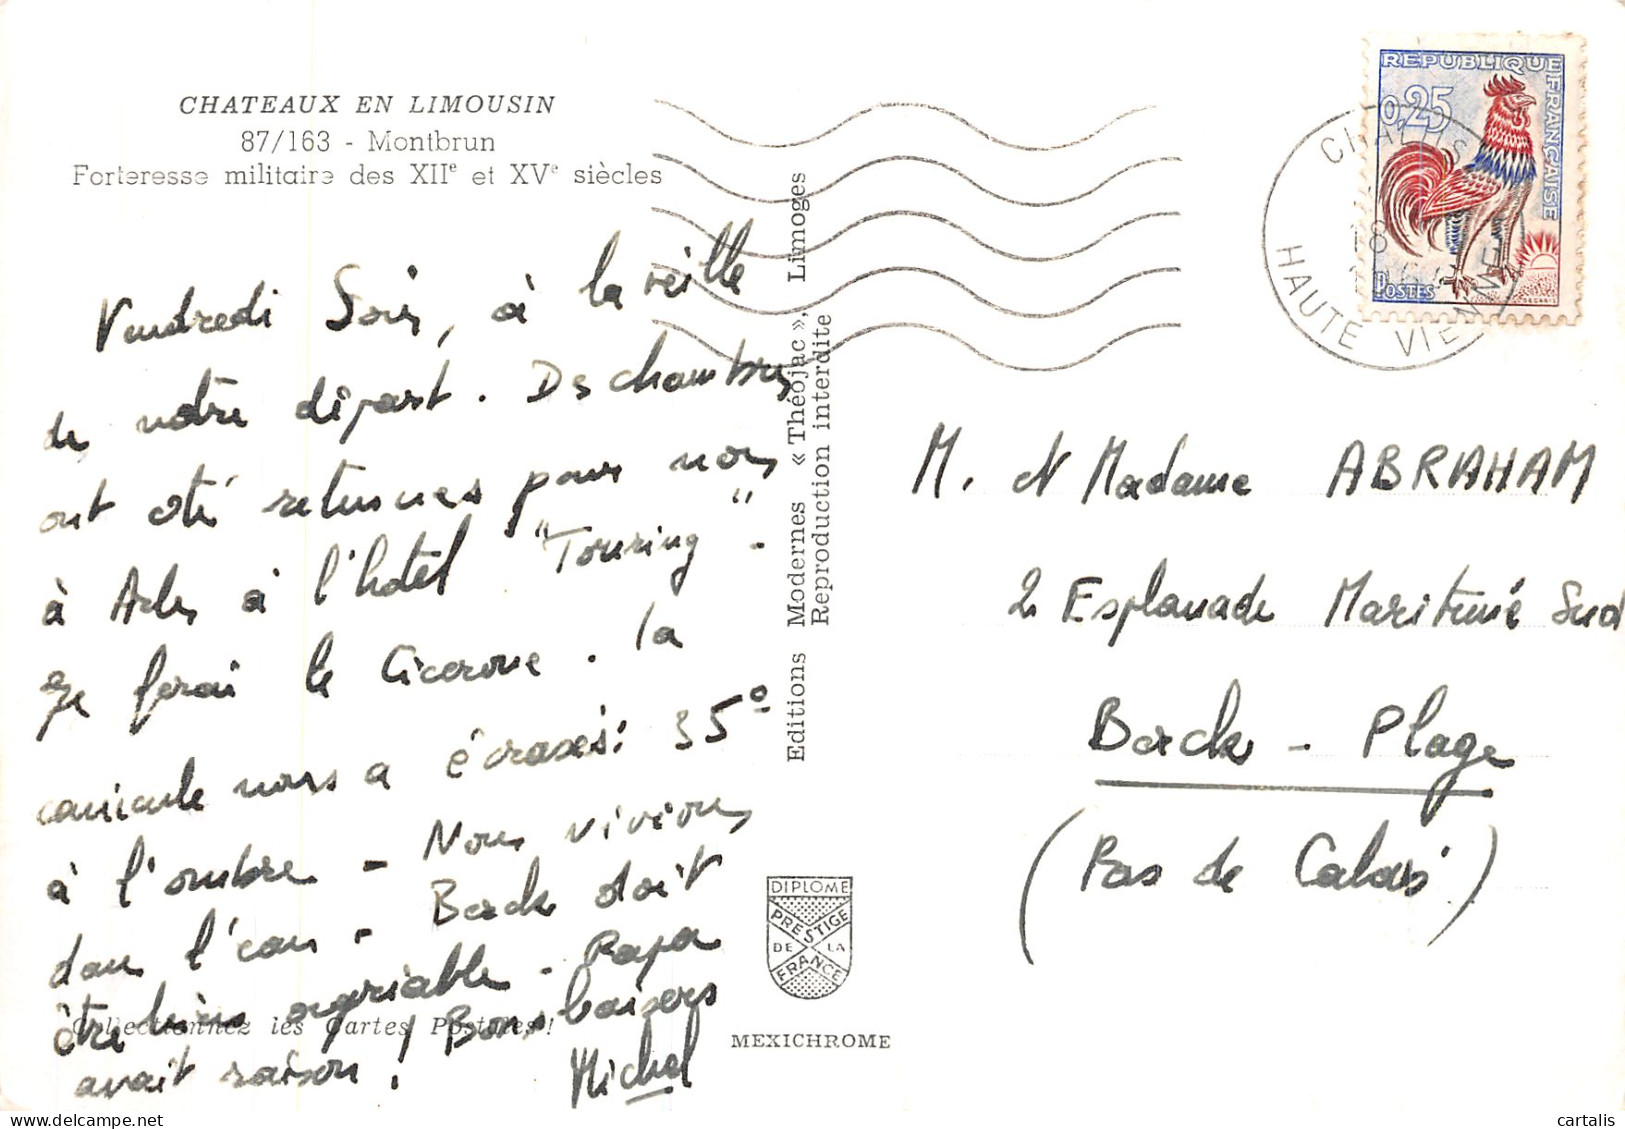 CHATEAUX EN LIMOUSIN
87/163 - Montbrun
Forteresse militaire des XIIe et XVe siècles
Vendredi Soir, à la veille
de notre départ. Des chambres
ont été retenues pour nous
à Arles à l'hôtel "Touring" -
Je ferai le Cicerone. la
canicule nous a écrasés: 35°
à l'ombre - Nous vivions
dans l'eau - Berck doit
être bien agréable - Papa
avait raison! Bons baisers
Michel
Collectionnez les Cartes Postales!
Editions Modernes « Théojac », Limoges
Reproduction interdite
DIPLOME
PRESTIGE
DE LA
FRANCE
MEXICHROME
REPUBLIQUE FRANÇAISE
0,25
POSTES
DECARIS
18
HAUTE VIENNE
M. et Madame ABRAHAM
2 Esplanade Maritime Sud
Berck - Plage
(Pas de Calais)
cartalis